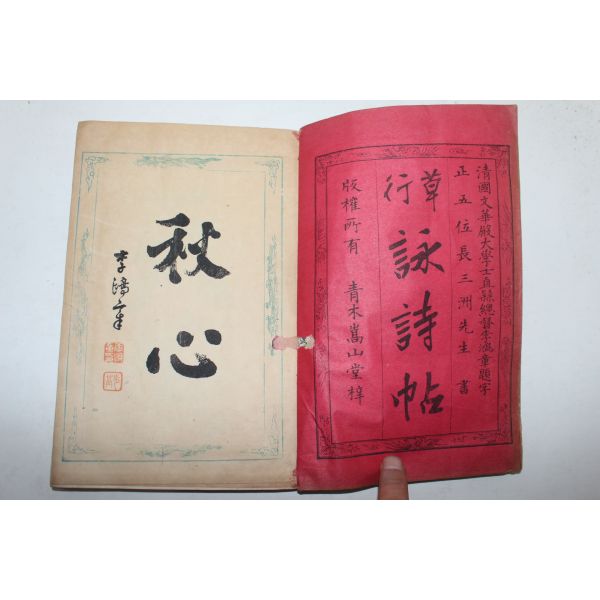 清國文華殿大學士直隸總督李鴻章題字
正五位長三洲先生書
草行詠詩帖
版權所有 青木嵩山堂梓
秋心
李鴻章